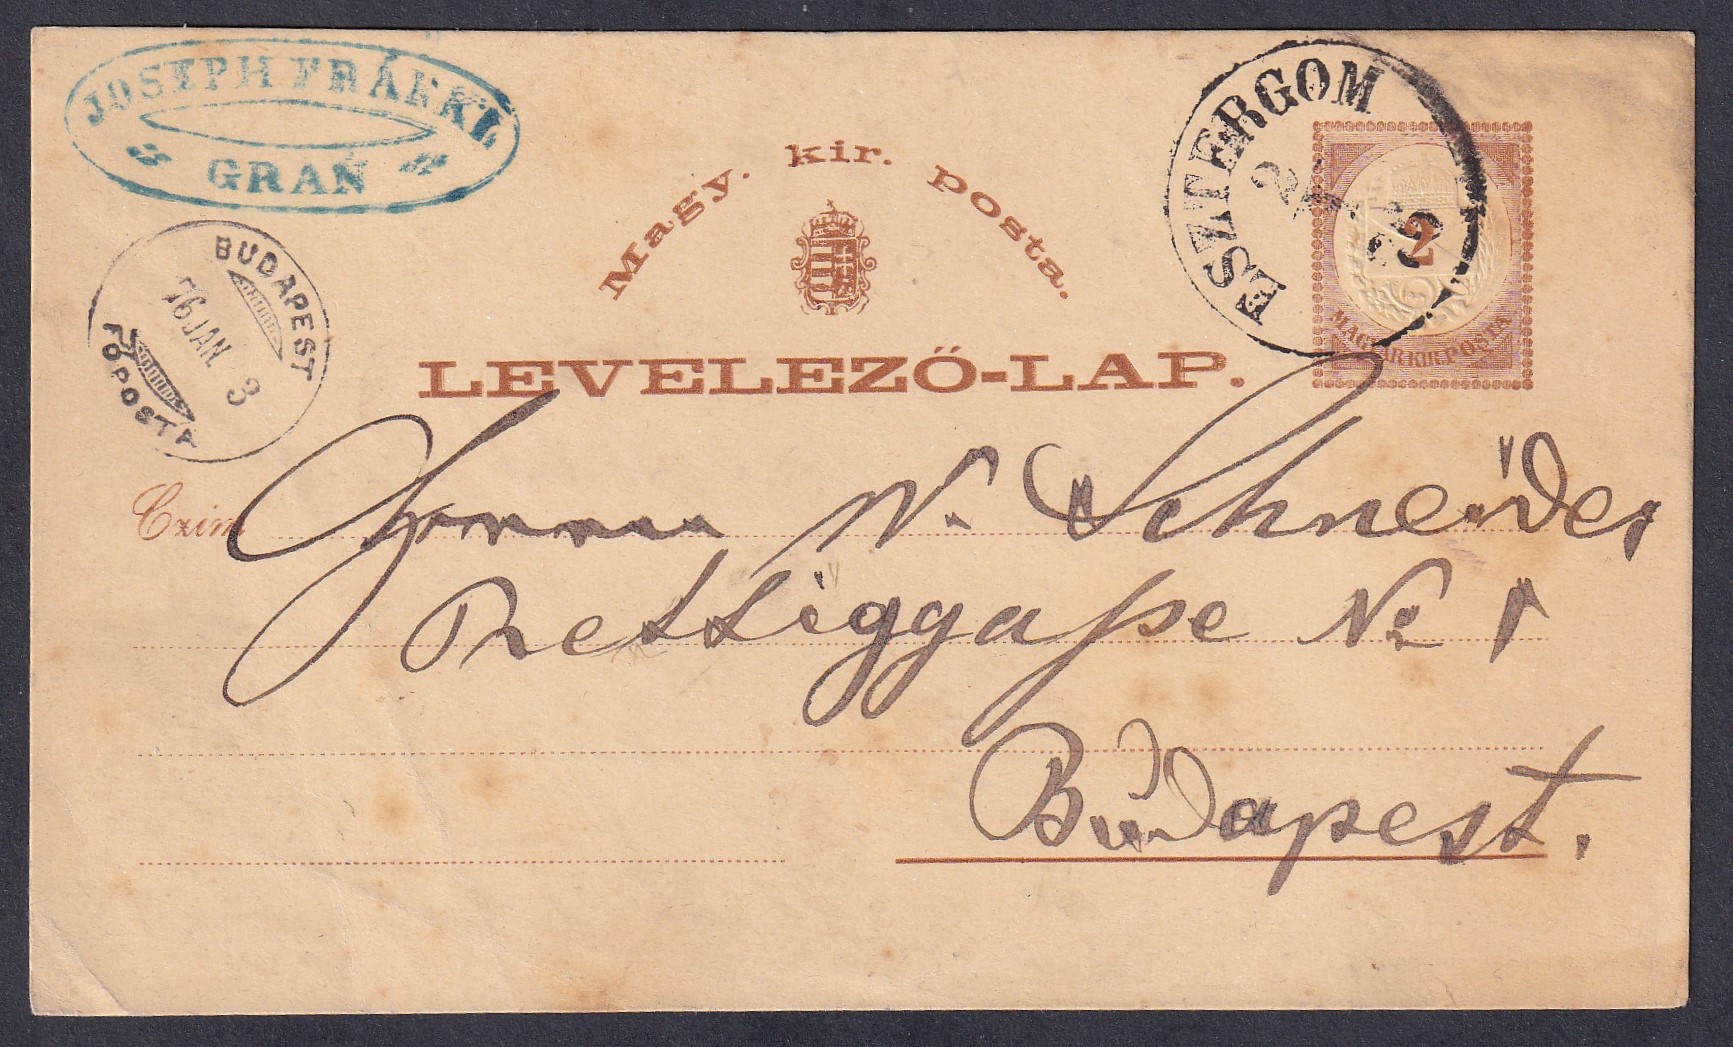 JOSEPH FRÄNKL
GRAN
BUDAPEST
76 JAN. 3
FŐPOSTA
Magy. kir. posta.
LEVELEZŐ-LAP.
ESZTERGOM
2
2
MAGYAR KIR. POSTA
Czim
Herrn W. Schneider
Rettiggaße No 1
Budapest.